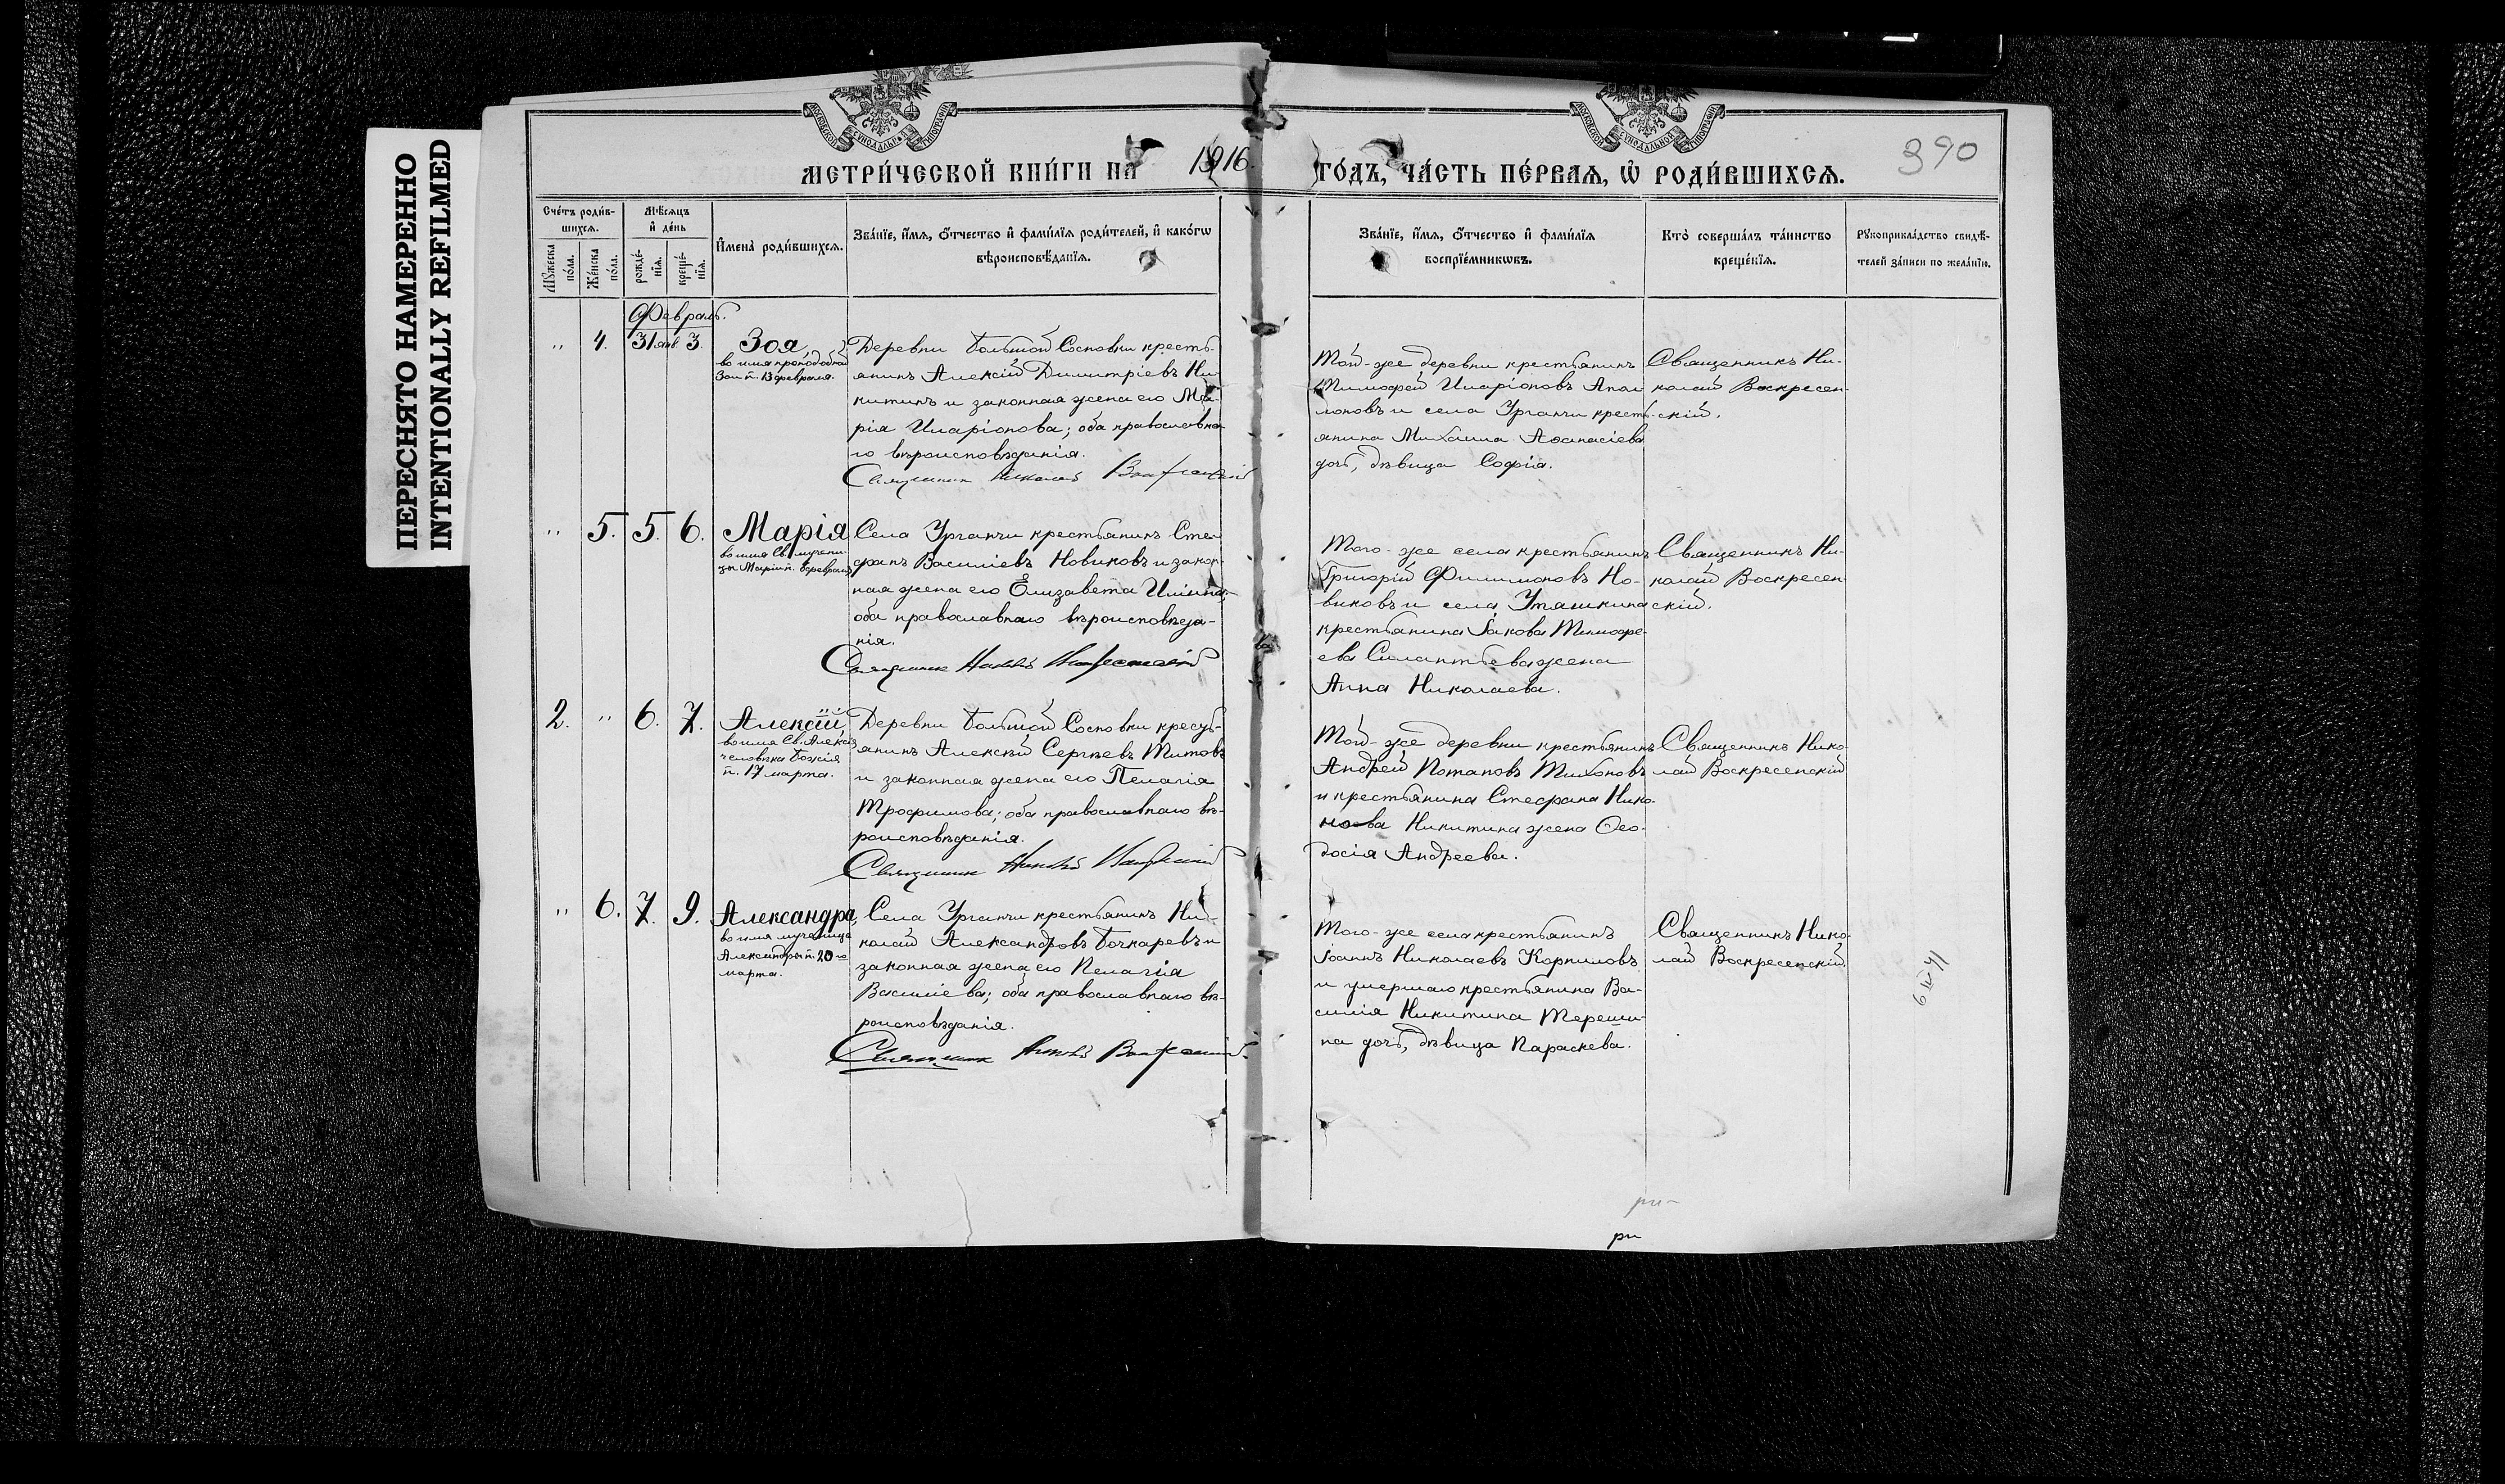 ПЕРЕСНЯТО НАМЕРЕННО
INTENTIONALLY REFILMED
МОСКОВСКОЙ СѴНОДАЛЬНОЙ ТИПОГРАФІИ
МОСКОВСКОЙ СѴНОДАЛЬНОЙ ТИПОГРАФІИ
МЕТРИ́ЧЕСКОЙ КНИ́ГИ НА 1916. ГО́ДЪ, ЧА́СТЬ ПЕ́РВАЯ, Ѡ҆ РОДИ́ВШИХСЯ.
390
Сче́тъ роди́в-
шихся.
Мѣ́сяцъ
и҆ де́нь
Мꙋ́жеска
по́ла.
Же́нска
по́ла.
рожде́-
нїя.
креще́-
нїя.
И҆мена̀ роди́вшихся.
Зва́нїе, и҆́мя, о҆́тчество и҆ фами́лїя роди́телей, и҆ како́гѡ
вѣроисповѣ́данїя.
Зва́нїе, и҆́мя, о҆́тчество и҆ фами́лїя
воспрїе́мникѡвъ.
Кто̀ соверша́лъ та́инство
креще́нїя.
Рꙋкоприкла́дство свидѣ́-
телей за́писи по жела́нїю.
Февраль.
" 4. 31 янв. 3.
Зоя,
во имя преподобной
Зои п. 13 февраля.
Деревни Большой Сосновки кресть-
янинъ Алексій Димитріевъ Ни-
китинъ и законная жена его Ма-
рія Иларіонова; оба православна-
го вѣроисповѣданія.
Священник Николай Воскресенский
Той-же деревни крестьянинъ
Тимофей Иларіоновъ
и села Урганчи кресть-
янина Михаила Аѳанасіева
дочь, дѣвица Софія.
Священникъ Ни-
колай Воскресен-
скій.
" 5. 5. 6.
Марія
во имя Св. мучени-
цы Маріи п. 6 февраля
Села Урганчи крестьянинъ Сте-
фанъ Василіевъ Новиковъ и закон-
ная жена его Елизавета Иліина;
оба православнаго вѣроисповѣда-
нія.
Священник Николай Воскресенский
Того-же села крестьянинъ
Григорій Филимоновъ Но-
виковъ и села Утяшкина
крестьянина Іакова Тимофе-
ева Силантьева жена
Анна Николаева.
Священникъ Ни-
колай Воскресен-
скій.
2. " 6. 7.
Алексій,
во имя Св. Алексія
человѣка Божія
п. 17 марта.
Деревни Большой Сосновки кресть-
янинъ Алексѣй Сергѣевъ Титовъ
и законная жена его Пелагія
Трофимова; оба православнаго вѣ-
роисповѣданія.
Священник Николай Воскресенский
Той-же деревни крестьянинъ
Андрей Потаповъ Тихоновъ
и крестьянина Стефана
Никитина жена Ѳео-
досія Андреева.
Священникъ Нико-
лай Воскресенскій
" 6. 7. 9.
Александра,
во имя мученицы
Александры п. 20-го
марта.
Села Урганчи крестьянинъ Ни-
колай Александровъ Бочкаревъ и
законная жена его Пелагія
Василіева; оба православнаго вѣ-
роисповѣданія.
Священник Николай Воскресенский
Того-же села крестьянинъ
Іоаннъ Николаевъ Корниловъ
и умершаго крестьянина Ва-
силія Никитина Тереши-
на дочь, дѣвица Параскева.
Священникъ Нико-
лай Воскресенскій.
6 IV 41
ри-
ри